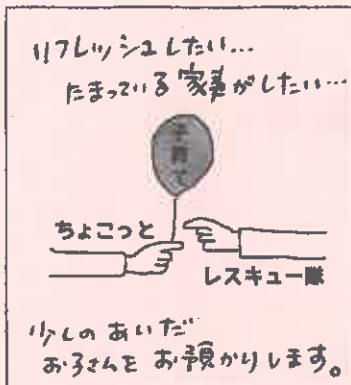 リフレッシュしたい…
たまっている家事がしたい…
子育て
ちょこっと
レスキュー隊
少しのあいだ
お子さんをお預かりします。